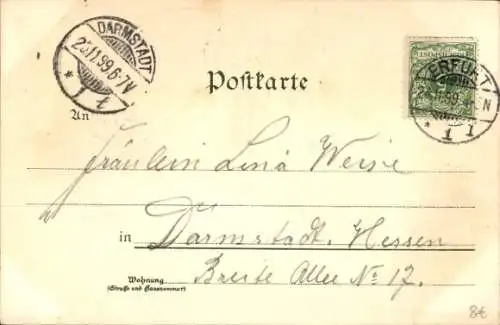 DARMSTADT
25.11.99.6-7V
* 1 t
Postkarte
ERFURT
24.11.99
N
* 1 1
An
Fräulein Lina Weise
in Darmstadt. Hessen
Wohnung
(Straße und Hausnummer)
Breite Allee No 17.
8€